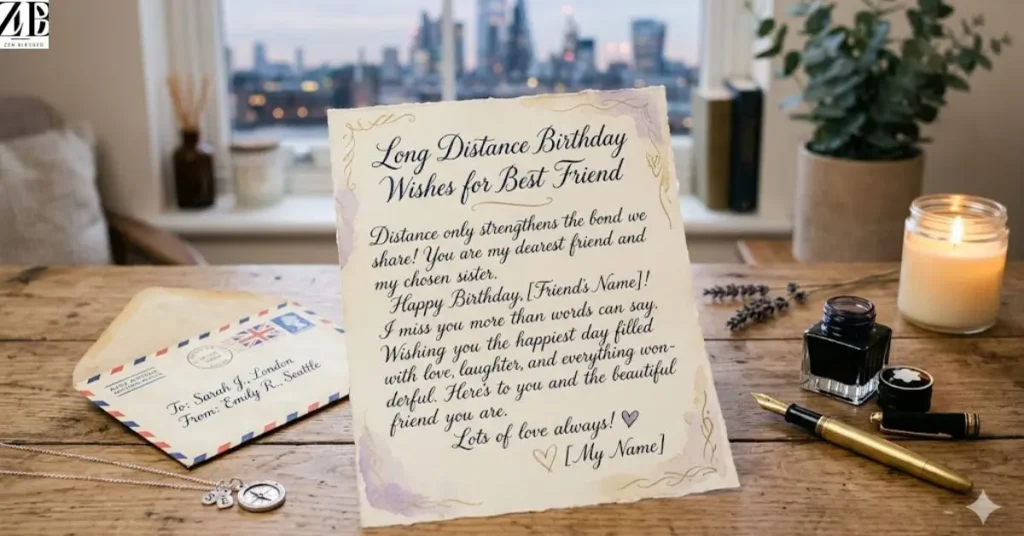 ZB
ZEN BLESSED
Long Distance Birthday
Wishes for Best Friend
Distance only strengthens the bond we
share! You are my dearest friend and
my chosen sister.
Happy Birthday, [Friend's Name]!
I miss you more than words can say.
Wishing you the happiest day filled
with love, laughter, and everything won-
derful. Here's to you and the beautiful
friend you are.
Lots of love always!
[My Name]
To: Sarah J., London
From: Emily R., Seattle